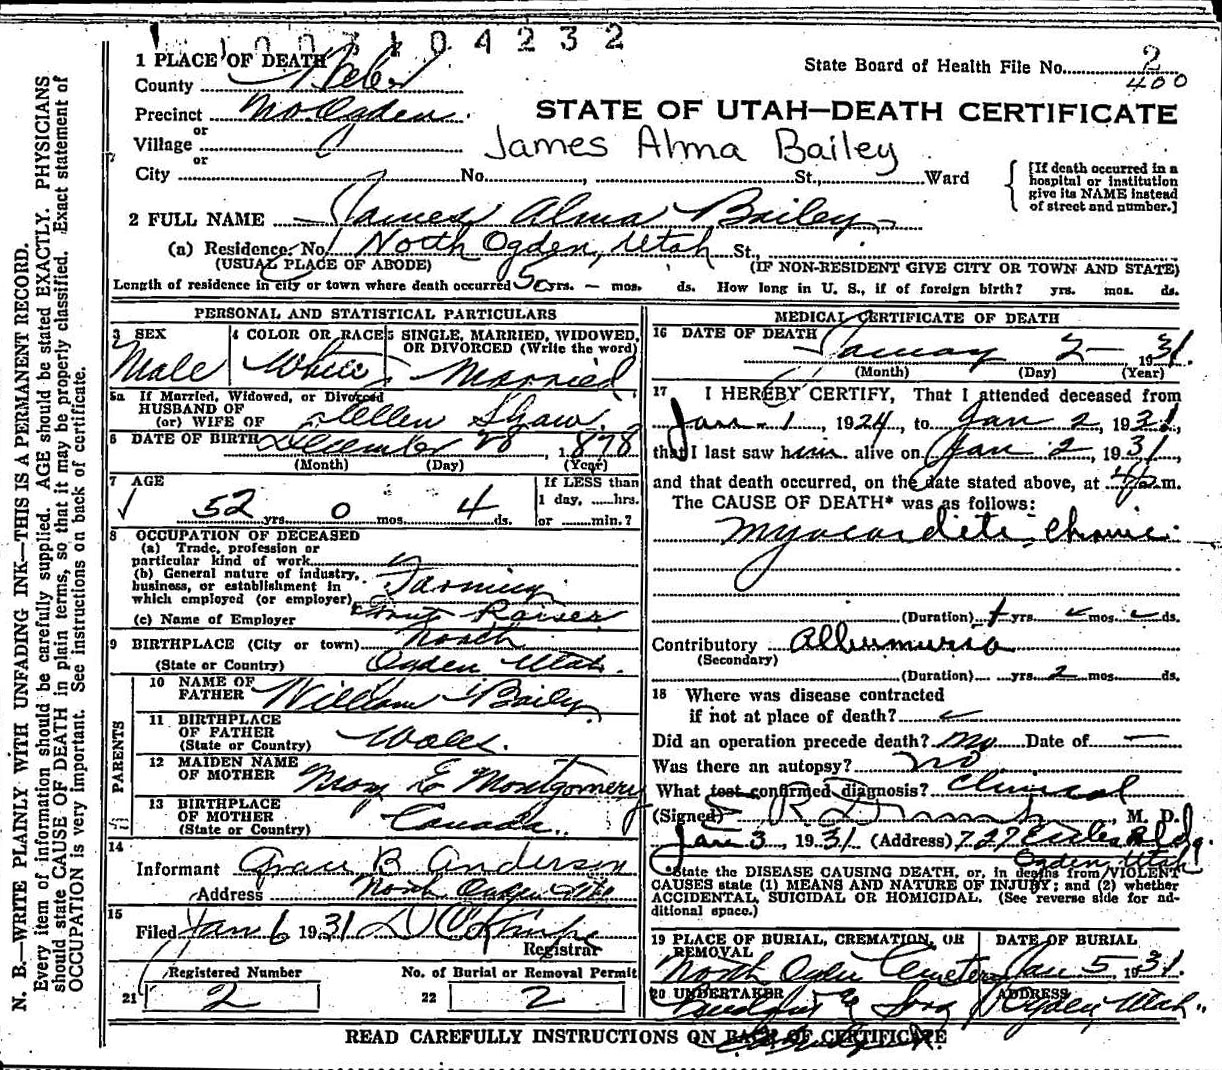 1003104232
1 PLACE OF DEATH
State Board of Health File No. 2
400
County Weber
Precinct No. Ogden
STATE OF UTAH—DEATH CERTIFICATE
or
Village
James Alma Bailey
or
City No. , St., Ward
[If death occurred in a
hospital or institution
give its NAME instead
of street and number.]
2 FULL NAME James Alma Bailey
(a) Residence. No. North Ogden, Utah St.,
(USUAL PLACE OF ABODE) (IF NON-RESIDENT GIVE CITY OR TOWN AND STATE)
Length of residence in city or town where death occurred 50 yrs. — mos. ds. How long in U. S., if of foreign birth? yrs. mos. ds.
PERSONAL AND STATISTICAL PARTICULARS
3 SEX 4 COLOR OR RACE 5 SINGLE, MARRIED, WIDOWED,
OR DIVORCED (Write the word)
Male White Married
5a If Married, Widowed, or Divorced
HUSBAND OF
(or) WIFE OF Hellen Shaw
6 DATE OF BIRTH December 28, 1878
(Month) (Day) (Year)
7 AGE If LESS than
52 yrs. 0 mos. 4 ds. 1 day, ......hrs.
or ......min.?
8 OCCUPATION OF DECEASED
(a) Trade, profession or
particular kind of work
(b) General nature of industry,
business, or establishment in
which employed (or employer) Farming
(c) Name of Employer Fruit Raiser
9 BIRTHPLACE (City or town) North
(State or Country) Ogden Utah.
PARENTS
10 NAME OF
FATHER William Baily
11 BIRTHPLACE
OF FATHER
(State or Country) Wales.
12 MAIDEN NAME
OF MOTHER Mary E Montgomery
13 BIRTHPLACE
OF MOTHER
(State or Country) Canada.
14
Informant Grace B Anderson
Address North Ogden Utah
15
Filed Jan 6 1931
Registrar
Registered Number No. of Burial or Removal Permit
21 2 22 2
MEDICAL CERTIFICATE OF DEATH
16 DATE OF DEATH
January 2— 1931.
(Month) (Day) (Year)
17 I HEREBY CERTIFY, That I attended deceased from
Jan. 1, 1924, to Jan 2, 1931,
that I last saw him alive on Jan 2, 1931,
and that death occurred, on the date stated above, at m.
The CAUSE OF DEATH* was as follows:
Myocardites Chronic.
(Duration) yrs. mos. ds.
Contributory Albumuria
(Secondary)
(Duration) yrs. 2 mos. ds.
18 Where was disease contracted
if not at place of death?
Did an operation precede death? No Date of —
Was there an autopsy? No
What test confirmed diagnosis? Clinical
(Signed) E R , M. D.
Jan 3 1931 (Address) 727 Eccles Bldg.
Ogden, Utah
*State the DISEASE CAUSING DEATH, or, in deaths from VIOLENT
CAUSES state (1) MEANS AND NATURE OF INJURY; and (2) whether
ACCIDENTAL, SUICIDAL OR HOMICIDAL. (See reverse side for ad-
ditional space.)
19 PLACE OF BURIAL, CREMATION, OR
REMOVAL DATE OF BURIAL
North Ogden Cemetery Jan 5 1931.
20 UNDERTAKER ADDRESS
& Ogden, Utah.
READ CAREFULLY INSTRUCTIONS ON BACK OF CERTIFICATE
N. B.—WRITE PLAINLY WITH UNFADING INK—THIS IS A PERMANENT RECORD.
Every item of information should be carefully supplied. AGE should be stated EXACTLY. PHYSICIANS
should state CAUSE OF DEATH in plain terms, so that it may be properly classified. Exact statement of
OCCUPATION is very important. See instructions on back of certificate.